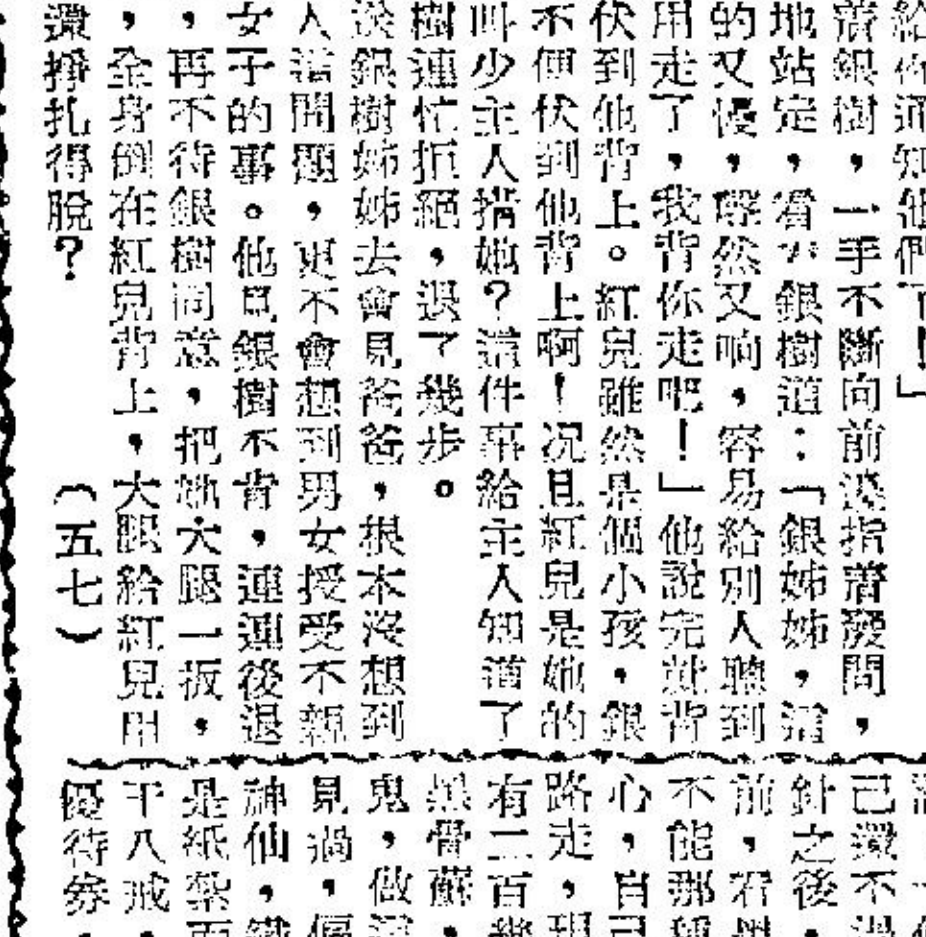 給你通知他們了！」
着銀樹，一手不斷向前邊指着發問，
地站定，看了銀樹道：「銀姊姊，這
的又慢，聲然又响，容易給別人聽到
用走了，我背你走吧！」他說完就背
伏到他背上。紅兒雖然是個小孩，銀
不便伏到他背上啊！况且紅兒是她的
叫少主人揹她？這件事給主人知道了
樹連忙拒絕，退了幾步。
銀樹姊姊去會見爸爸，根本沒想到
人這問題，更不會想到男女授受不親
女子的事。他見銀樹不肯，連連後退
，再不待銀樹同意，把她大腿一扳，
，全身倒在紅兒背上，大眼給紅兒用
還掙扎得脫？
（五七）
己還不
針之後
前，看
不能那種
心，自己
路走，現
有二百幾
黑骨蘇，
鬼，做
見過，偏
神仙，
是紙紮而
八戒，
優待券，